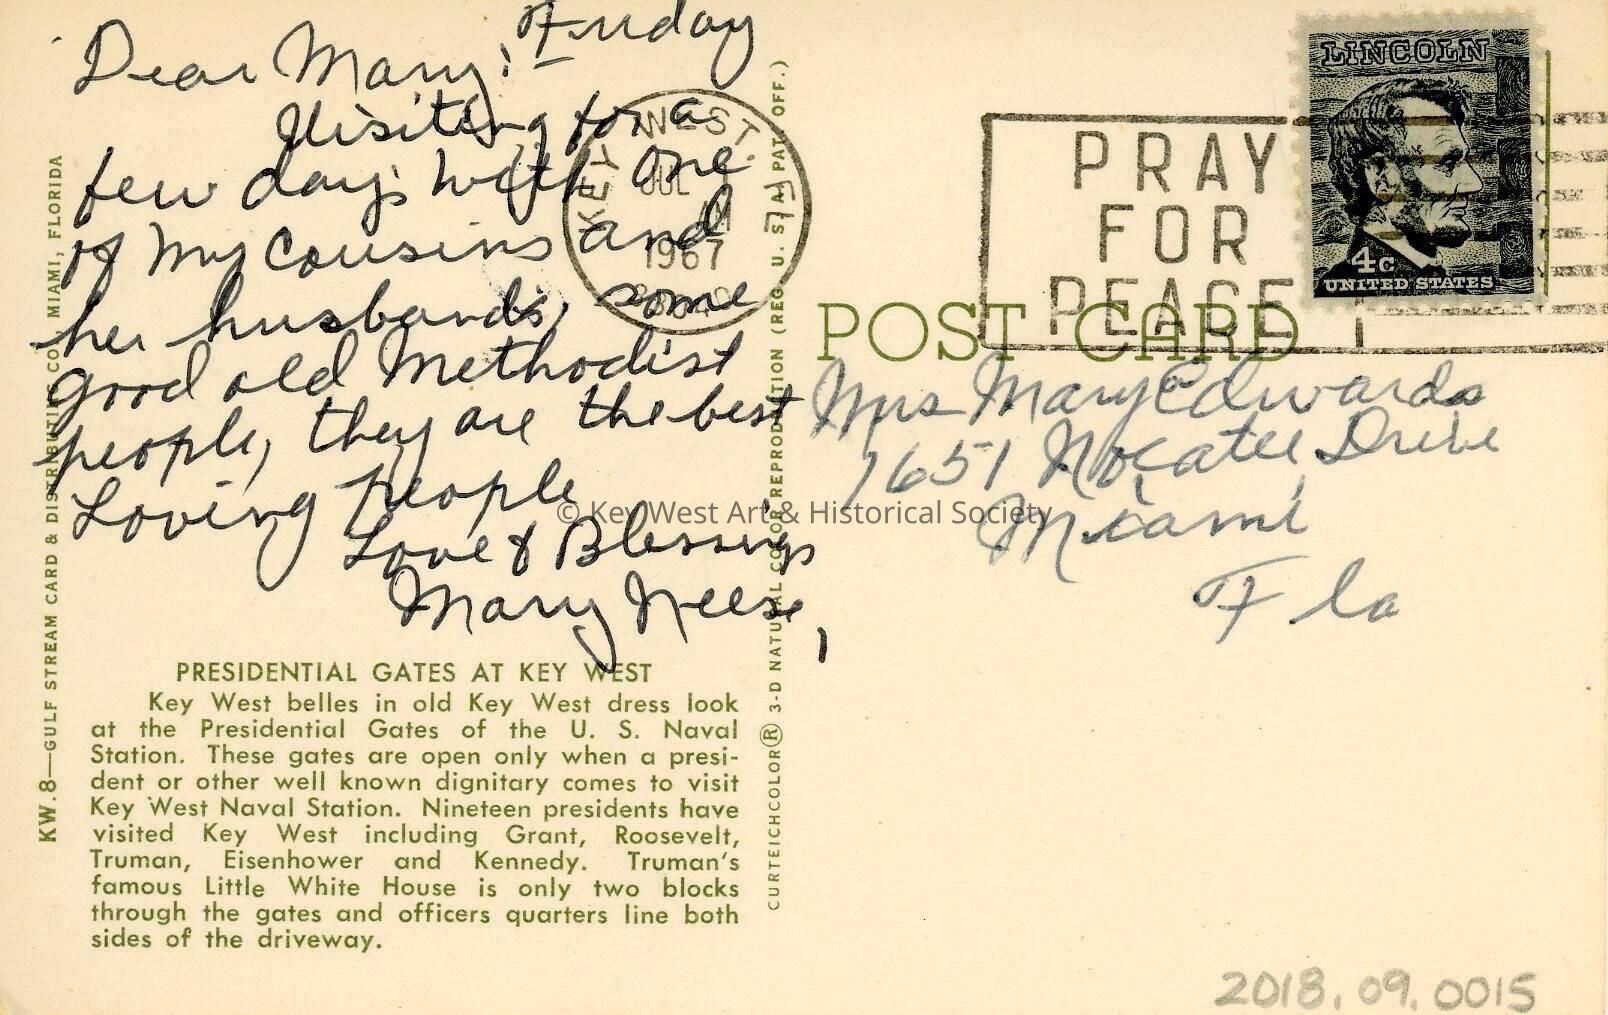 Friday
Dear Mary:
Visiting for a
few days with one
of my cousins and
her husband, some
good old Methodist
people, they are the best
Loving people
Love & Blessings
Mary Neese,
PRESIDENTIAL GATES AT KEY WEST
Key West belles in old Key West dress look
at the Presidential Gates of the U. S. Naval
Station. These gates are open only when a presi-
dent or other well known dignitary comes to visit
Key West Naval Station. Nineteen presidents have
visited Key West including Grant, Roosevelt,
Truman, Eisenhower and Kennedy. Truman's
famous Little White House is only two blocks
through the gates and officers quarters line both
sides of the driveway.
KW.8—GULF STREAM CARD & DISTRIBUTING CO., MIAMI, FLORIDA
CURTEICHCOLOR® 3-D NATURAL COLOR REPRODUCTION (REG. U. S. A. PAT. OFF.)
KEY WEST, FLA.
JUL
AM
1967
PRAY
FOR
PEACE
LINCOLN
4c
UNITED STATES
POST CARD
Mrs Mary Edwards
1651 Nocatee Drive
Miami
Fla
© Key West Art & Historical Society
2018.09.0015